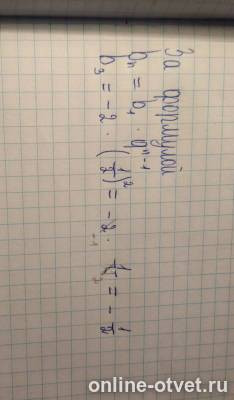 За формулой
bₙ = b₁ · qⁿ⁻¹
b₃ = -2 · (1/2)² = -2 · 1/4 = -1/2
online-otvet.ru